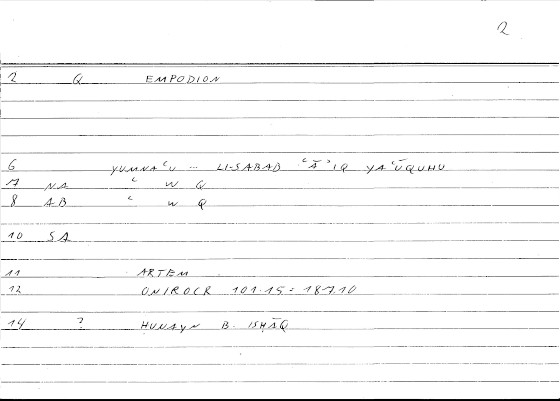 2
2 Q EMPODION
6 YUMNAʿU ... LI-SABAB ʿĀʾIQ YAʿŪQUHU
7 NA ʿ W Q
8 AB ʿ W Q
10 SA
11 ARTEM
12 ONIROCR 101.15 = 187.10
14 ? HUNAYN B. ISHĀQ